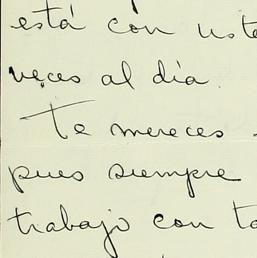 está con uste
veces al día
Te mereces
pues siempre
trabajo con to